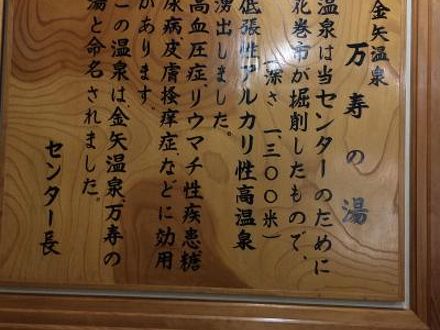 金矢温泉
万寿の湯
温泉は当センターのために
花巻市が掘削したもので、
(深さ 一、三〇〇米)
低張性アルカリ性高温泉
湧出しました。
高血圧症、リウマチ性疾患、糖
尿病、皮膚掻痒症、などに効用
があります。
この温泉は、金矢温泉、万寿の
湯と命名されました。
センター長